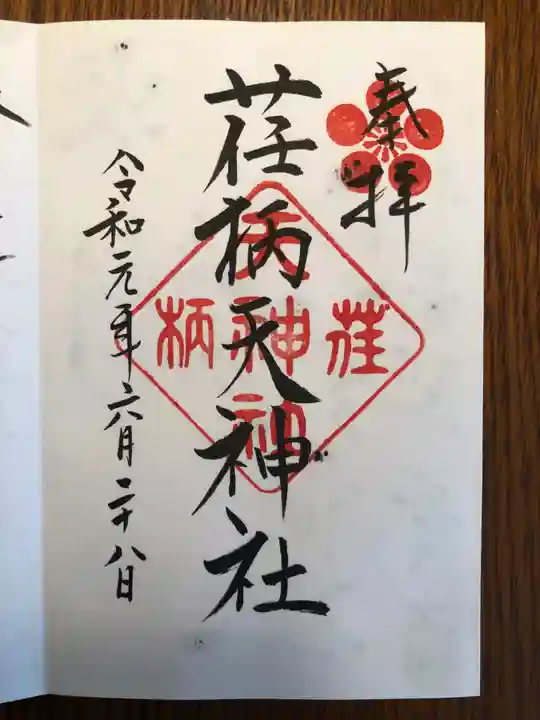 奉拝
荏柄天神社
荏柄天神社
令和元年六月二十八日